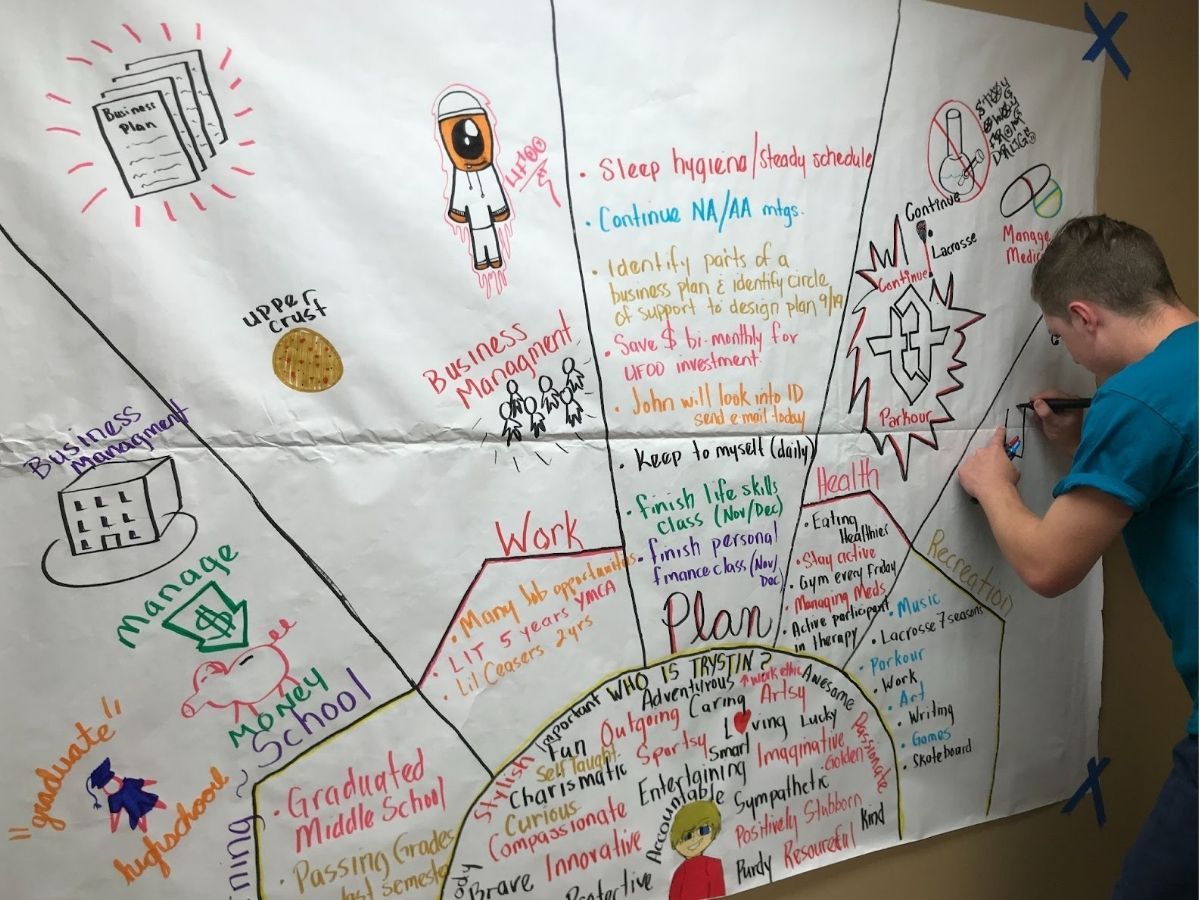 Business
Plan
UFOO
Upper
Crust
Business
Managment
Business
Managment
Manage
$
Money
"graduate"
highschool
School
• Graduated
Middle School
• Passing Grades
last semester
Work
• Many Job opportunities
• LIT 5 years YMCA
• Lil Ceasers 2 yrs
• Sleep hygiene/steady schedule
• Continue NA/AA mtgs.
• Identify parts of a
business plan & identify circle
of support to design plan 9/19
• Save $ bi-monthly for
UFOO investment.
• John will look into ID
send e-mail today
• Keep to myself (daily)
• finish life skills
class (Nov/Dec)
• finish personal
finance class (Nov/
Dec
Plan
STAY
AWAY
FROM
DRUGS
Continue
Lacrosse
Manage
Continue
Parkour
Health
• Eating
Healthier
• Stay active
• Gym every Friday
• Managing Meds
• Active participant
in therapy
Recreation
• Music
• Lacrosse 7 seasons
• Parkour
• Work
• Art
• Writing
• Games
• Skateboard
WHO IS TRYSTIN?
Important
Adventurous
work ethic
Awesome
Stylish
Fun
Outgoing
Caring
Artsy
Self Taught
Charismatic
Sportsy
Smart
Loving
Lucky
Passionate
Curious
Entertaining
Imaginative
Golden
Compassionate
Accountable
Sympathetic
Innovative
Positively Stubborn
Kind
Brave
Protective
Purdy
Resourceful